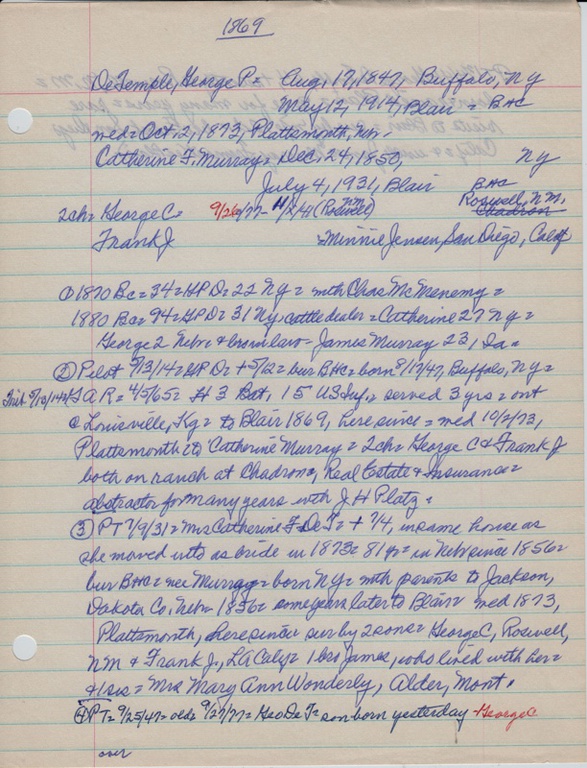 1869
DeTemple, George P = Aug, 17, 1847, Buffalo, NY
May 12, 1914, Blair = BHC
med = Oct, 2, 1873, Plattsmouth, Neb,
Catherine F. Murray, Dec, 24, 1850, NY
July 4, 1931, Blair BHC
2ch = George C = 9/26/77 - 11/ /41 (Roswell NM) Roswell, N.M, Chadron
Frank J = Minnie Jensen, San Diego, Calif
① 1870 Bc = 34 = HP D = 22 NY = with Chas McMenemy =
1880 Bc = 94 = HP D = 31 NY, cattle dealer = Catherine 27 NY =
George 2 Neb = & bro in law = James Murray 23, Ia =
② Pilot 5/13/14 = HP D = + 5/12 = bur BHC = born 8/17/47, Buffalo, NY =
Trib 5/13/14 = GAR = 4/5/65 = H 3 Bat, 15 US Inf, = served 3 yrs = out
@ Louisville, Ky = to Blair 1869, here since = med 10/2/73,
Plattsmouth to Catherine Murray = 2ch = George C & Frank J
both on ranch at Chadron, Real Estate & Insurance =
abstractor for many years with J H Platz =
③ PT 7/9/31 = Mrs Catherine F DeT = + 7/4, in same house as
she moved into as bride in 1873 = 81 yr = in Neb since 1856 =
bur BHC = nee Murray = born NY = with parents to Jackson,
Dakota Co, Neb = 1856 = some years later to Blair = med 1873,
Plattsmouth, here since sur by 2 sons = George C, Roswell,
NM & Frank J, LA Caly = 1 bro James, who lived with her =
& 1 sis = Mrs Mary Ann Wonderly, Alder, Mont.
④ PT = 9/25/47 = old = 9/27/77 = Geo DeT = son born yesterday George C
over